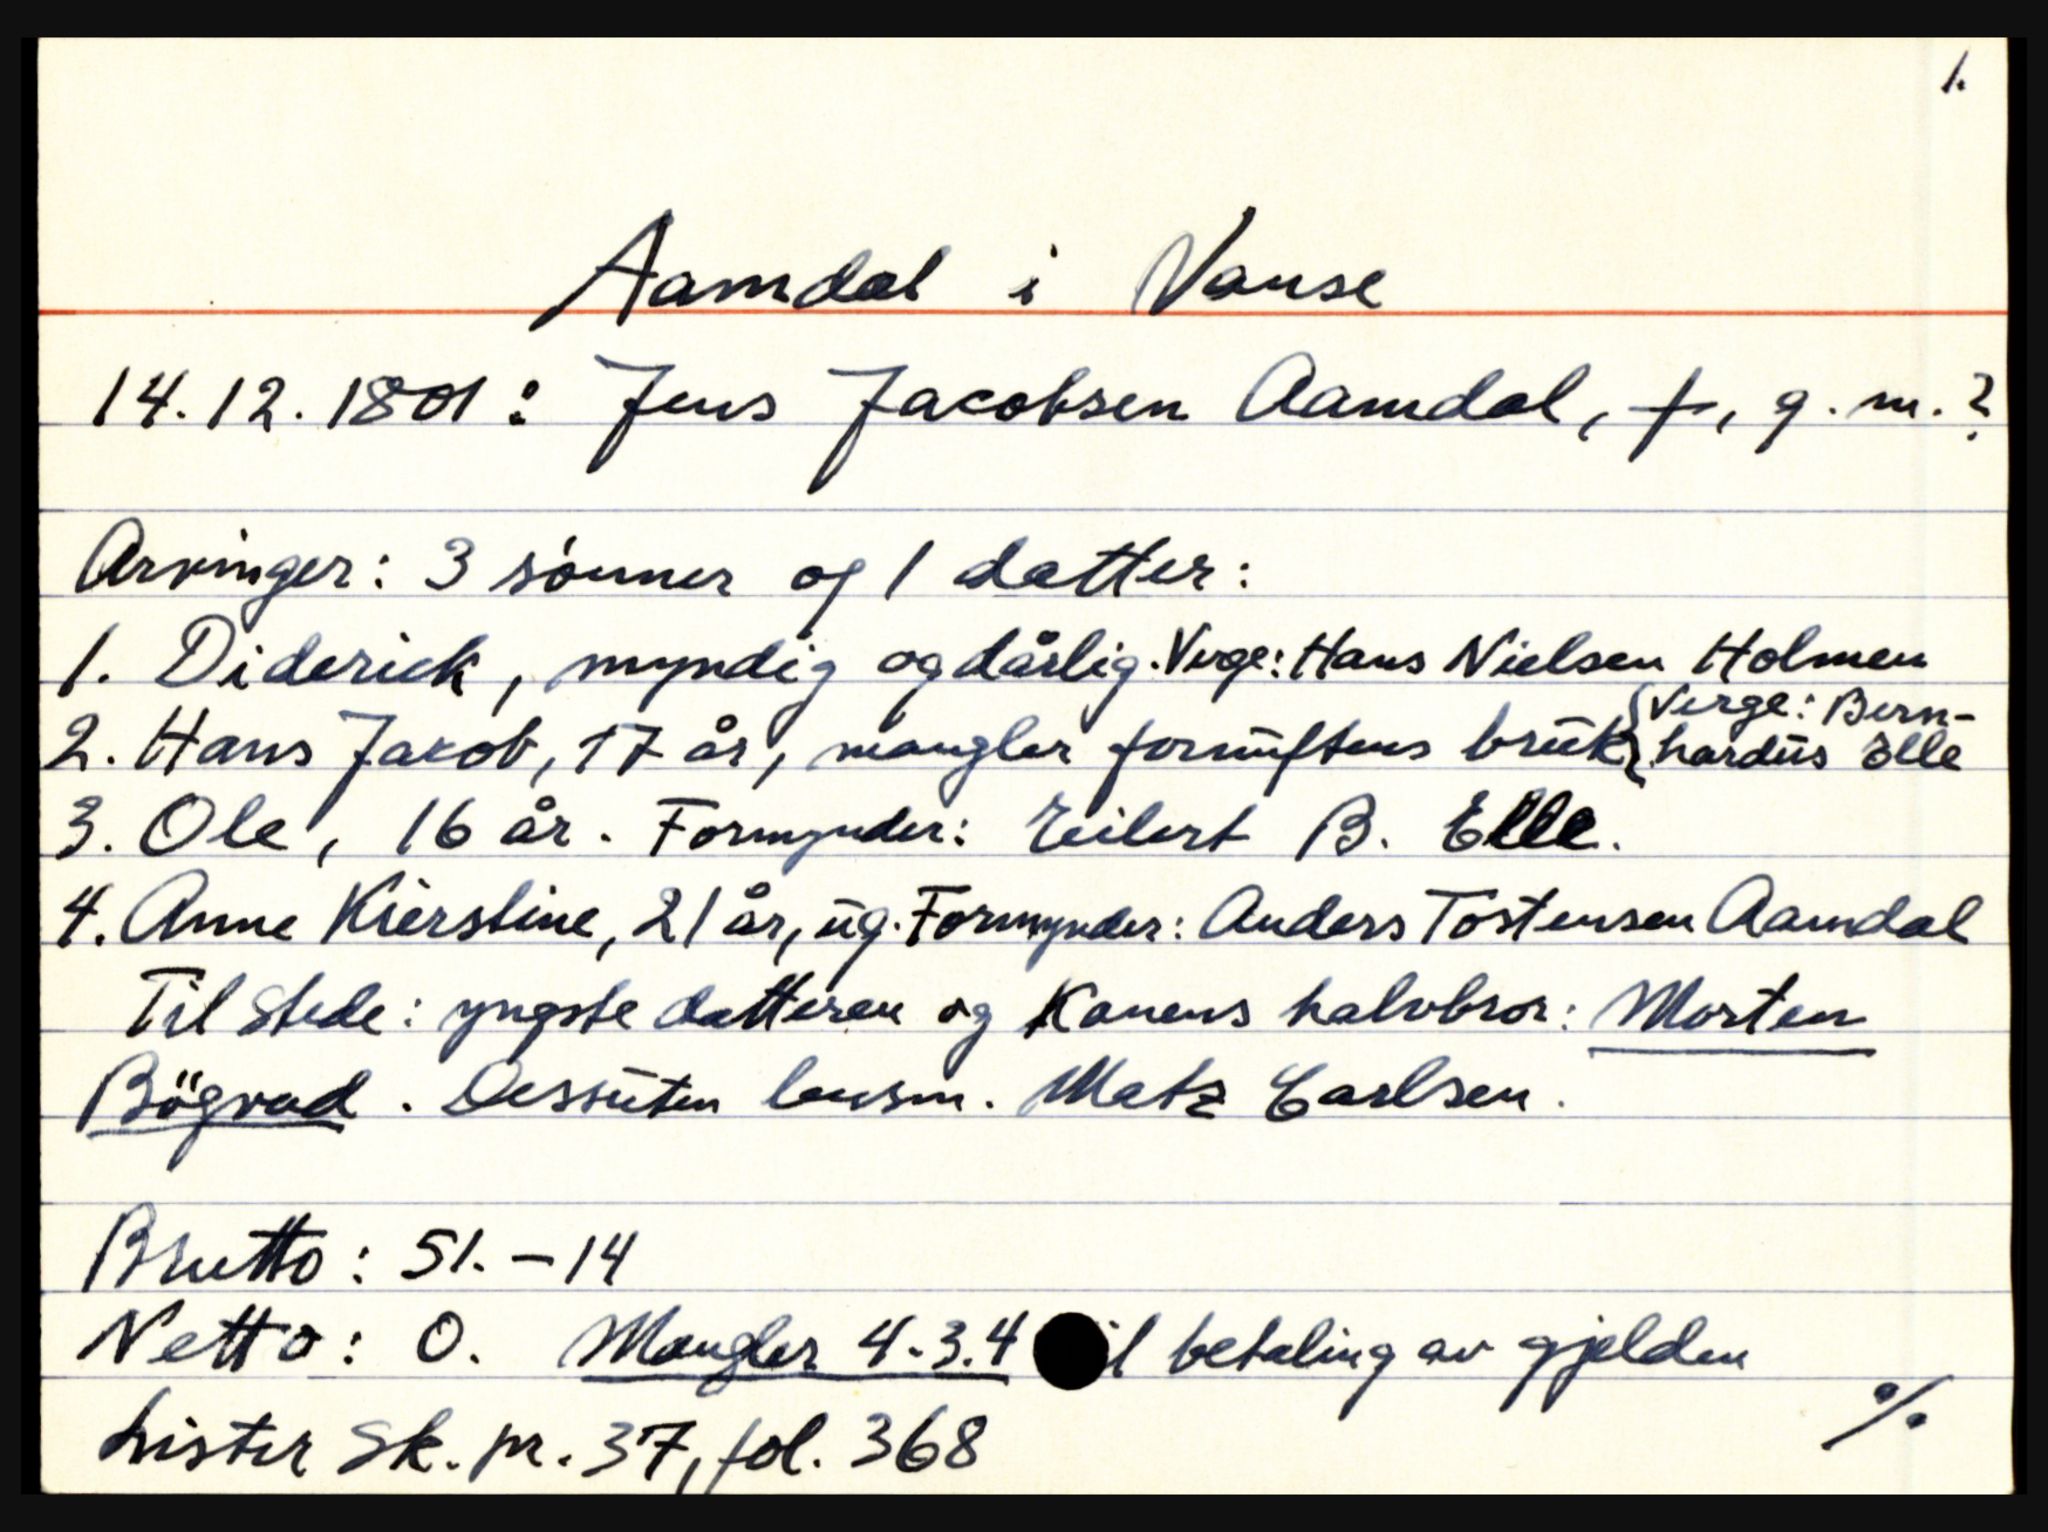 1.
Aamdal i Vanse
14.12.1801: Jens Jacobsen Aamdal, †, g.m.?
Arvinger: 3 sønner og 1 datter:
1. Diderick, myndig og dårlig. Verge: Hans Nielsen Holmen
2. Hans Jakob, 17 år, mangler fornuftens bruk { Verge: Bern-
hardus Elle
3. Ole, 16 år. Formynder: Eilert B. Elle.
4. Anne Kierstine, 21 år, ug. Formynder: Anders Tostensen Aamdal
Til stede: yngste datteren og Konens halvbror: Morten
Bøgvad. Dessuten lensm. Matz Carlsen.
Brutto: 51.-14
Netto: 0. Mangler 4.3.4 til betaling av gjelden
Lister Sk. pr. 37, fol. 368
%